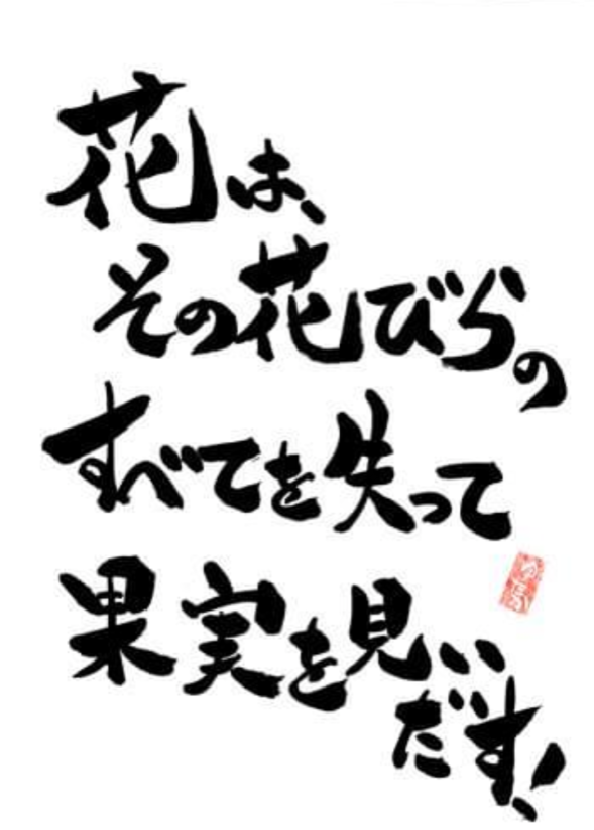 花は、
その花びらの
すべてを失って
果実を見い
だす!